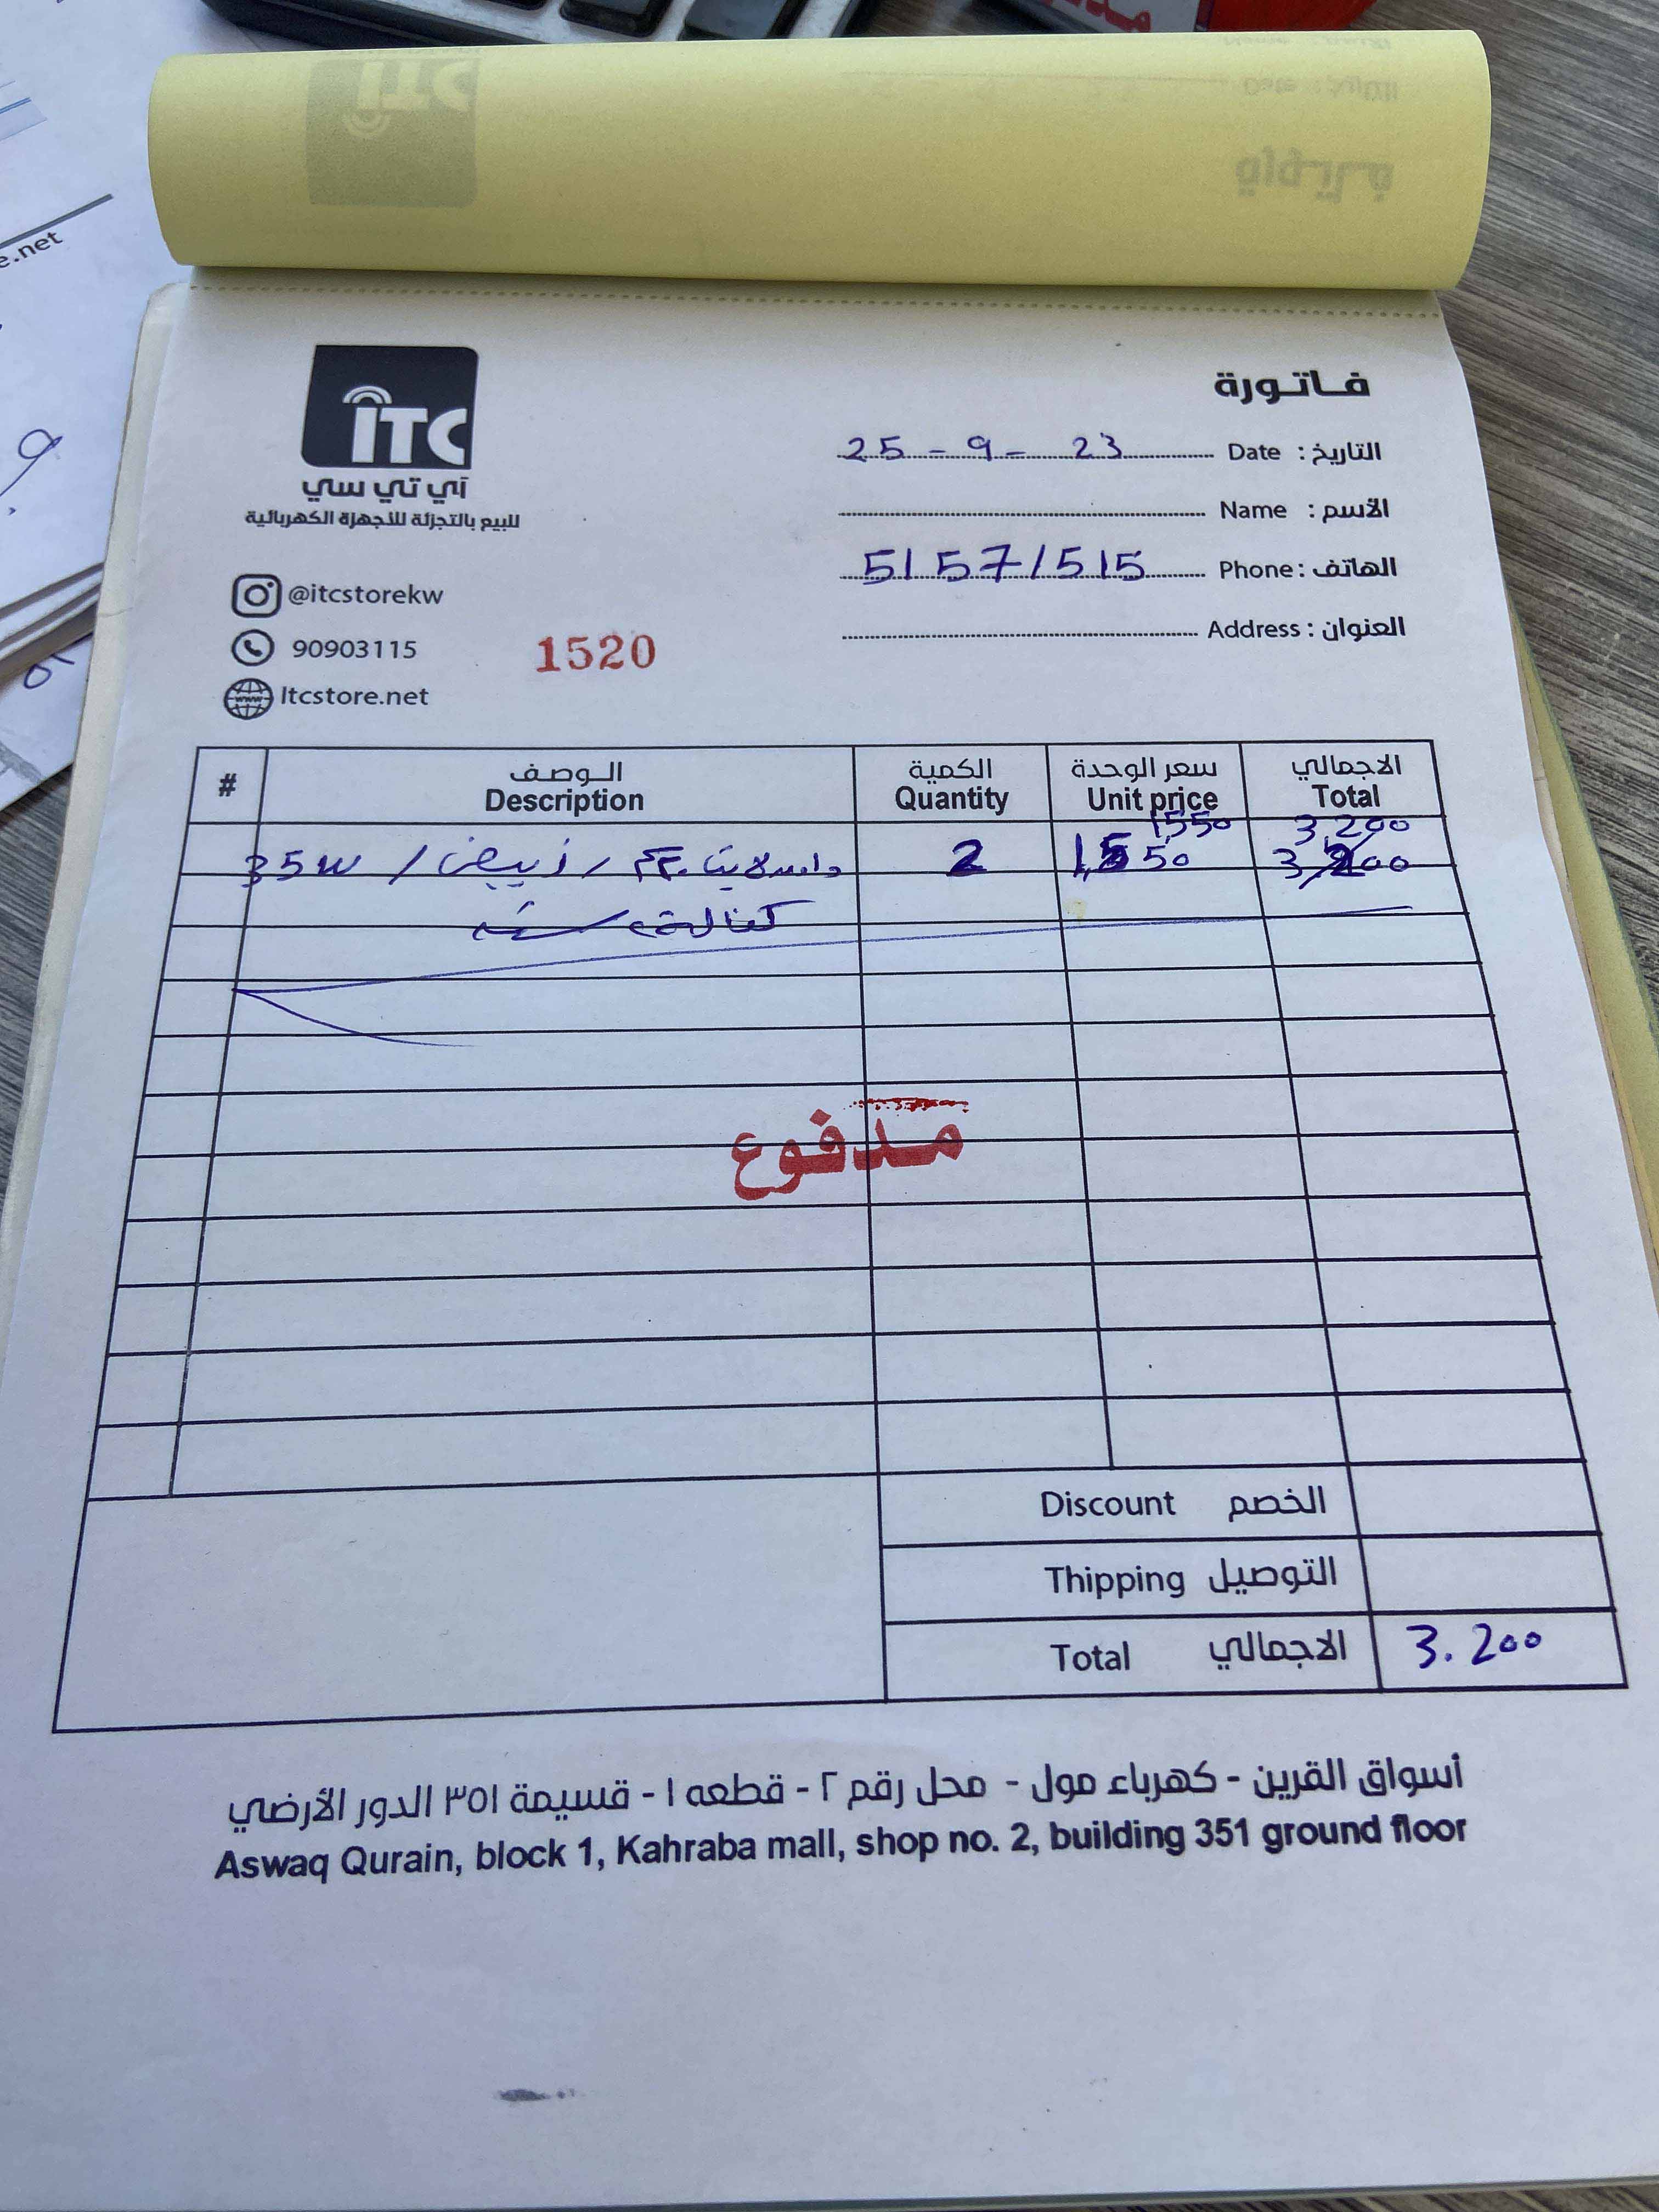 ITC
آي تي سي
للبيع بالتجزئة للأجهزة الكهربائية
@itcstorekw
90903115
Itcstore.net
1520
فاتورة
التاريخ : Date 25 - 9 - 23
الأسم : Name
الهاتف : Phone 51571515
العنوان : Address
# الوصف Description الكمية Quantity سعر الوحدة Unit price الاجمالي Total
1,550 3,200
35W / 2 1,550 3,200
كفالة سنة
مدفوع
Discount الخصم
Thipping التوصيل
Total الاجمالي 3.200
أسواق القرين - كهرباء مول - محل رقم ٢ - قطعه ١ - قسيمة ٣٥١ الدور الأرضي
Aswaq Qurain, block 1, Kahraba mall, shop no. 2, building 351 ground floor
e.net